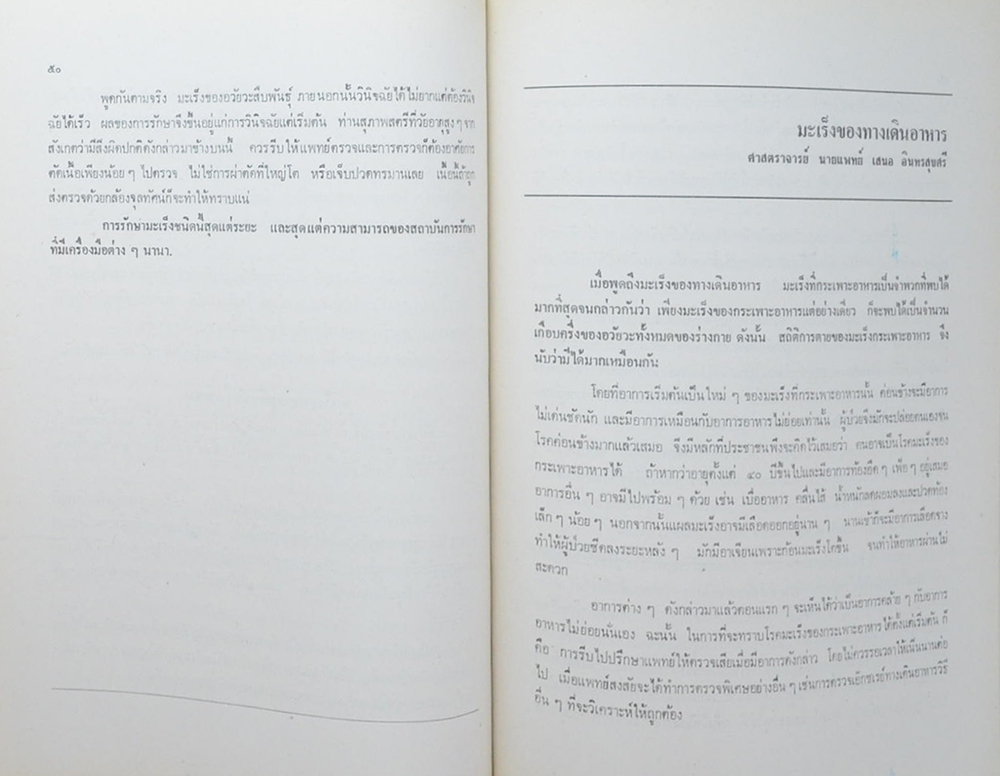 ๕๐
พูดกันตามจริง มะเร็งของอวัยวะสืบพันธุ์ ภายนอกนั้นวินิจฉัยได้ไม่ยากแต่ต้องวินิจ
ฉัยได้เร็ว ผลของการรักษาจึงขึ้นอยู่แก่การวินิจฉัยแต่เริ่มต้น ท่านสุภาพสตรีที่วัยอายุสูง ๆ จาก
สังเกตว่ามีสิ่งผิดปกติดังกล่าวมาข้างบนนี้ ควรรีบให้แพทย์ตรวจและการตรวจก็ต้องอาศัยการ
ตัดเนื้อเพียงน้อย ๆ ไปตรวจ ไม่ใช่การผ่าตัดที่ใหญ่โต หรือเจ็บปวดทรมานเลย เนื้อนี้ถ้าถูก
ส่งตรวจด้วยกล้องจุลทัศน์ก็จะทำให้ทราบแน่
การรักษามะเร็งชนิดนี้สุดแต่ระยะ และสุดแต่ความสามารถของสถาบันการรักษา
ที่มีเครื่องมือต่าง ๆ นานา.
มะเร็งของทางเดินอาหาร
ศาสตราจารย์ นายแพทย์ เสนอ อินทรสุขศรี
เมื่อพูดถึงมะเร็งของทางเดินอาหาร มะเร็งที่กระเพาะอาหารเป็นจำพวกที่พบได้
มากที่สุดจนกล่าวกันว่า เพียงมะเร็งของกระเพาะอาหารแต่อย่างเดียว ก็จะพบได้เป็นจำนวน
เกือบครึ่งของอวัยวะทั้งหมดของร่างกาย ดังนั้น สถิติการตายของมะเร็งกระเพาะอาหาร จึง
นับว่ามีได้มากเหมือนกัน
โดยที่อาการเริ่มต้นเป็นใหม่ ๆ ของมะเร็งที่กระเพาะอาหารนั้น ค่อนข้างจะมีอาการ
ไม่เด่นชัดนัก และมีอาการเหมือนกับอาการอาหารไม่ย่อยเท่านั้น ผู้ป่วยจึงมักจะปล่อยตนเองจน
โรคค่อนข้างมากแล้วเสมอ จึงมีหลักที่ประชาชนพึงจะคิดไว้เสมอว่า ตนอาจเป็นโรคมะเร็งของ
กระเพาะอาหารได้ ถ้าหากว่าอายุตั้งแต่ ๔๐ ปีขึ้นไปและมีอาการท้องอืด ๆ เฟ้อ ๆ อยู่เสมอ
อาการอื่น ๆ อาจมีไปพร้อม ๆ ด้วย เช่น เบื่ออาหาร คลื่นไส้ น้ำหนักลดผอมลงและปวดท้อง
เล็ก ๆ น้อย ๆ นอกจากนั้นแผลมะเร็งอาจมีเลือดออกอยู่นาน ๆ นานเข้าก็จะมีอาการเลือดจาง
ทำให้ผู้ป่วยซีดลงระยะหลัง ๆ มักมีอาเจียนเพราะก้อนมะเร็งโตขึ้น จนทำให้อาหารผ่านไม่
สะดวก
อาการต่าง ๆ ดังกล่าวมาแล้วตอนแรก ๆ จะเห็นได้ว่าเป็นอาการคล้าย ๆ กับอาการ
อาหารไม่ย่อยนั่นเอง ฉะนั้น ในการที่จะทราบโรคมะเร็งของกระเพาะอาหารได้ตั้งแต่เริ่มต้น ก็
คือ การรีบไปปรึกษาแพทย์ให้ตรวจเสียเมื่อมีอาการดังกล่าว โดยไม่ควรรอเวลาให้เนิ่นนานต่อ
ไป เมื่อแพทย์สงสัยจะได้ทำการตรวจพิเศษอย่างอื่น ๆ เช่นการตรวจเอ๊กซเรย์ทางเดินอาหารวิธี
อื่น ๆ ที่จะวิเคราะห์ให้ถูกต้อง